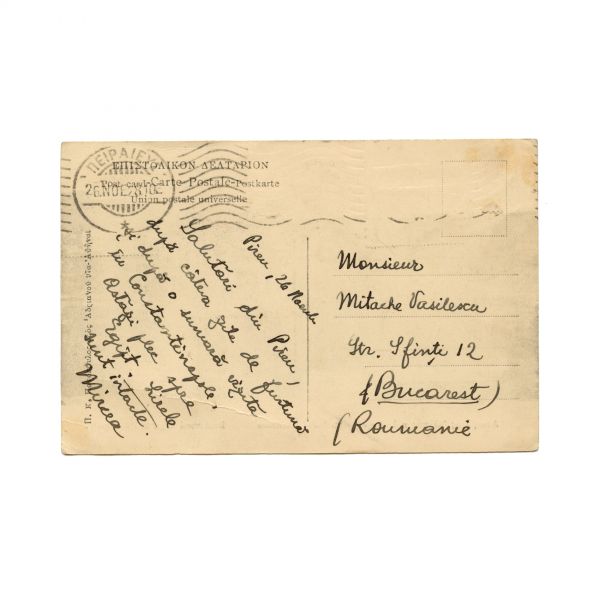 ΠΕΙΡΑΙΕΥΣ
26 NOE
ΕΠΙΣΤΟΛΙΚΟΝ ΔΕΛΤΑΡΙΟΝ
Post card-Carte Postale-Postkarte
Union postale universelle
Pireu, 26 Noembr
Salutări din Pireu,
după câteva zile de furtună
și după o sumară vizită
în Constantinople.
Astăzi plec spre
Egipt.
sunt intacte.
Mircea
Monsieur
Mitache Vasilescu
Str. Sfinți 12
(Bucarest)
(Roumanie